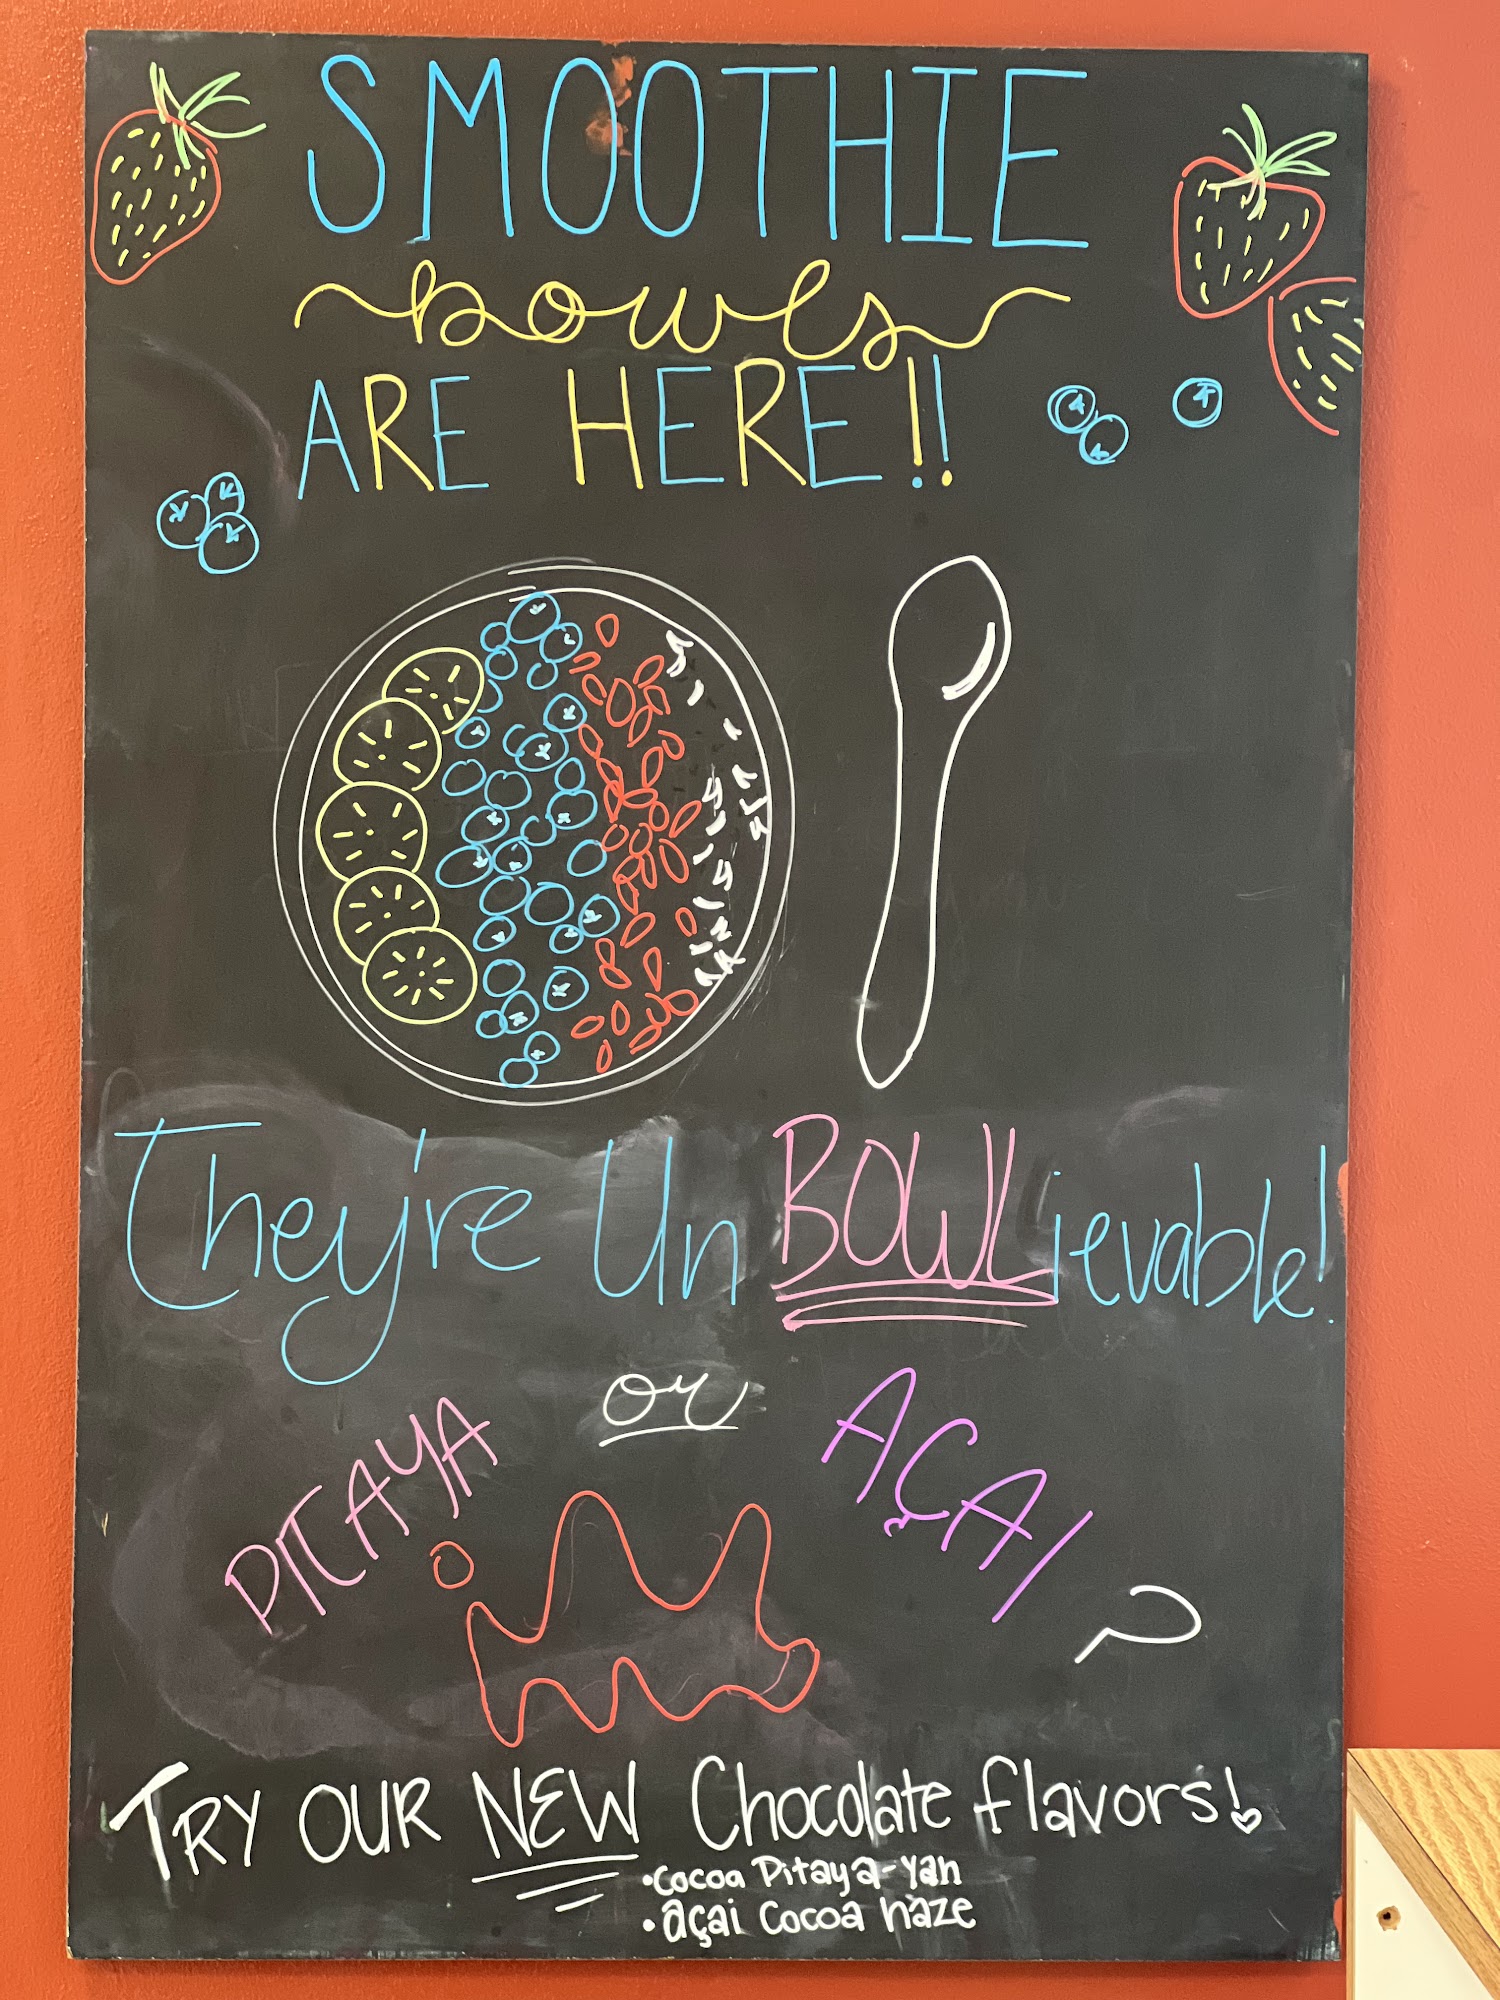 SMOOTHIE
bowls
ARE HERE!!
They're UnBOWLievable!
PITAYA or AÇAI ?
TRY OUR NEW Chocolate flavors!
•Cocoa Pitaya-yah
•açai Cocoa haze